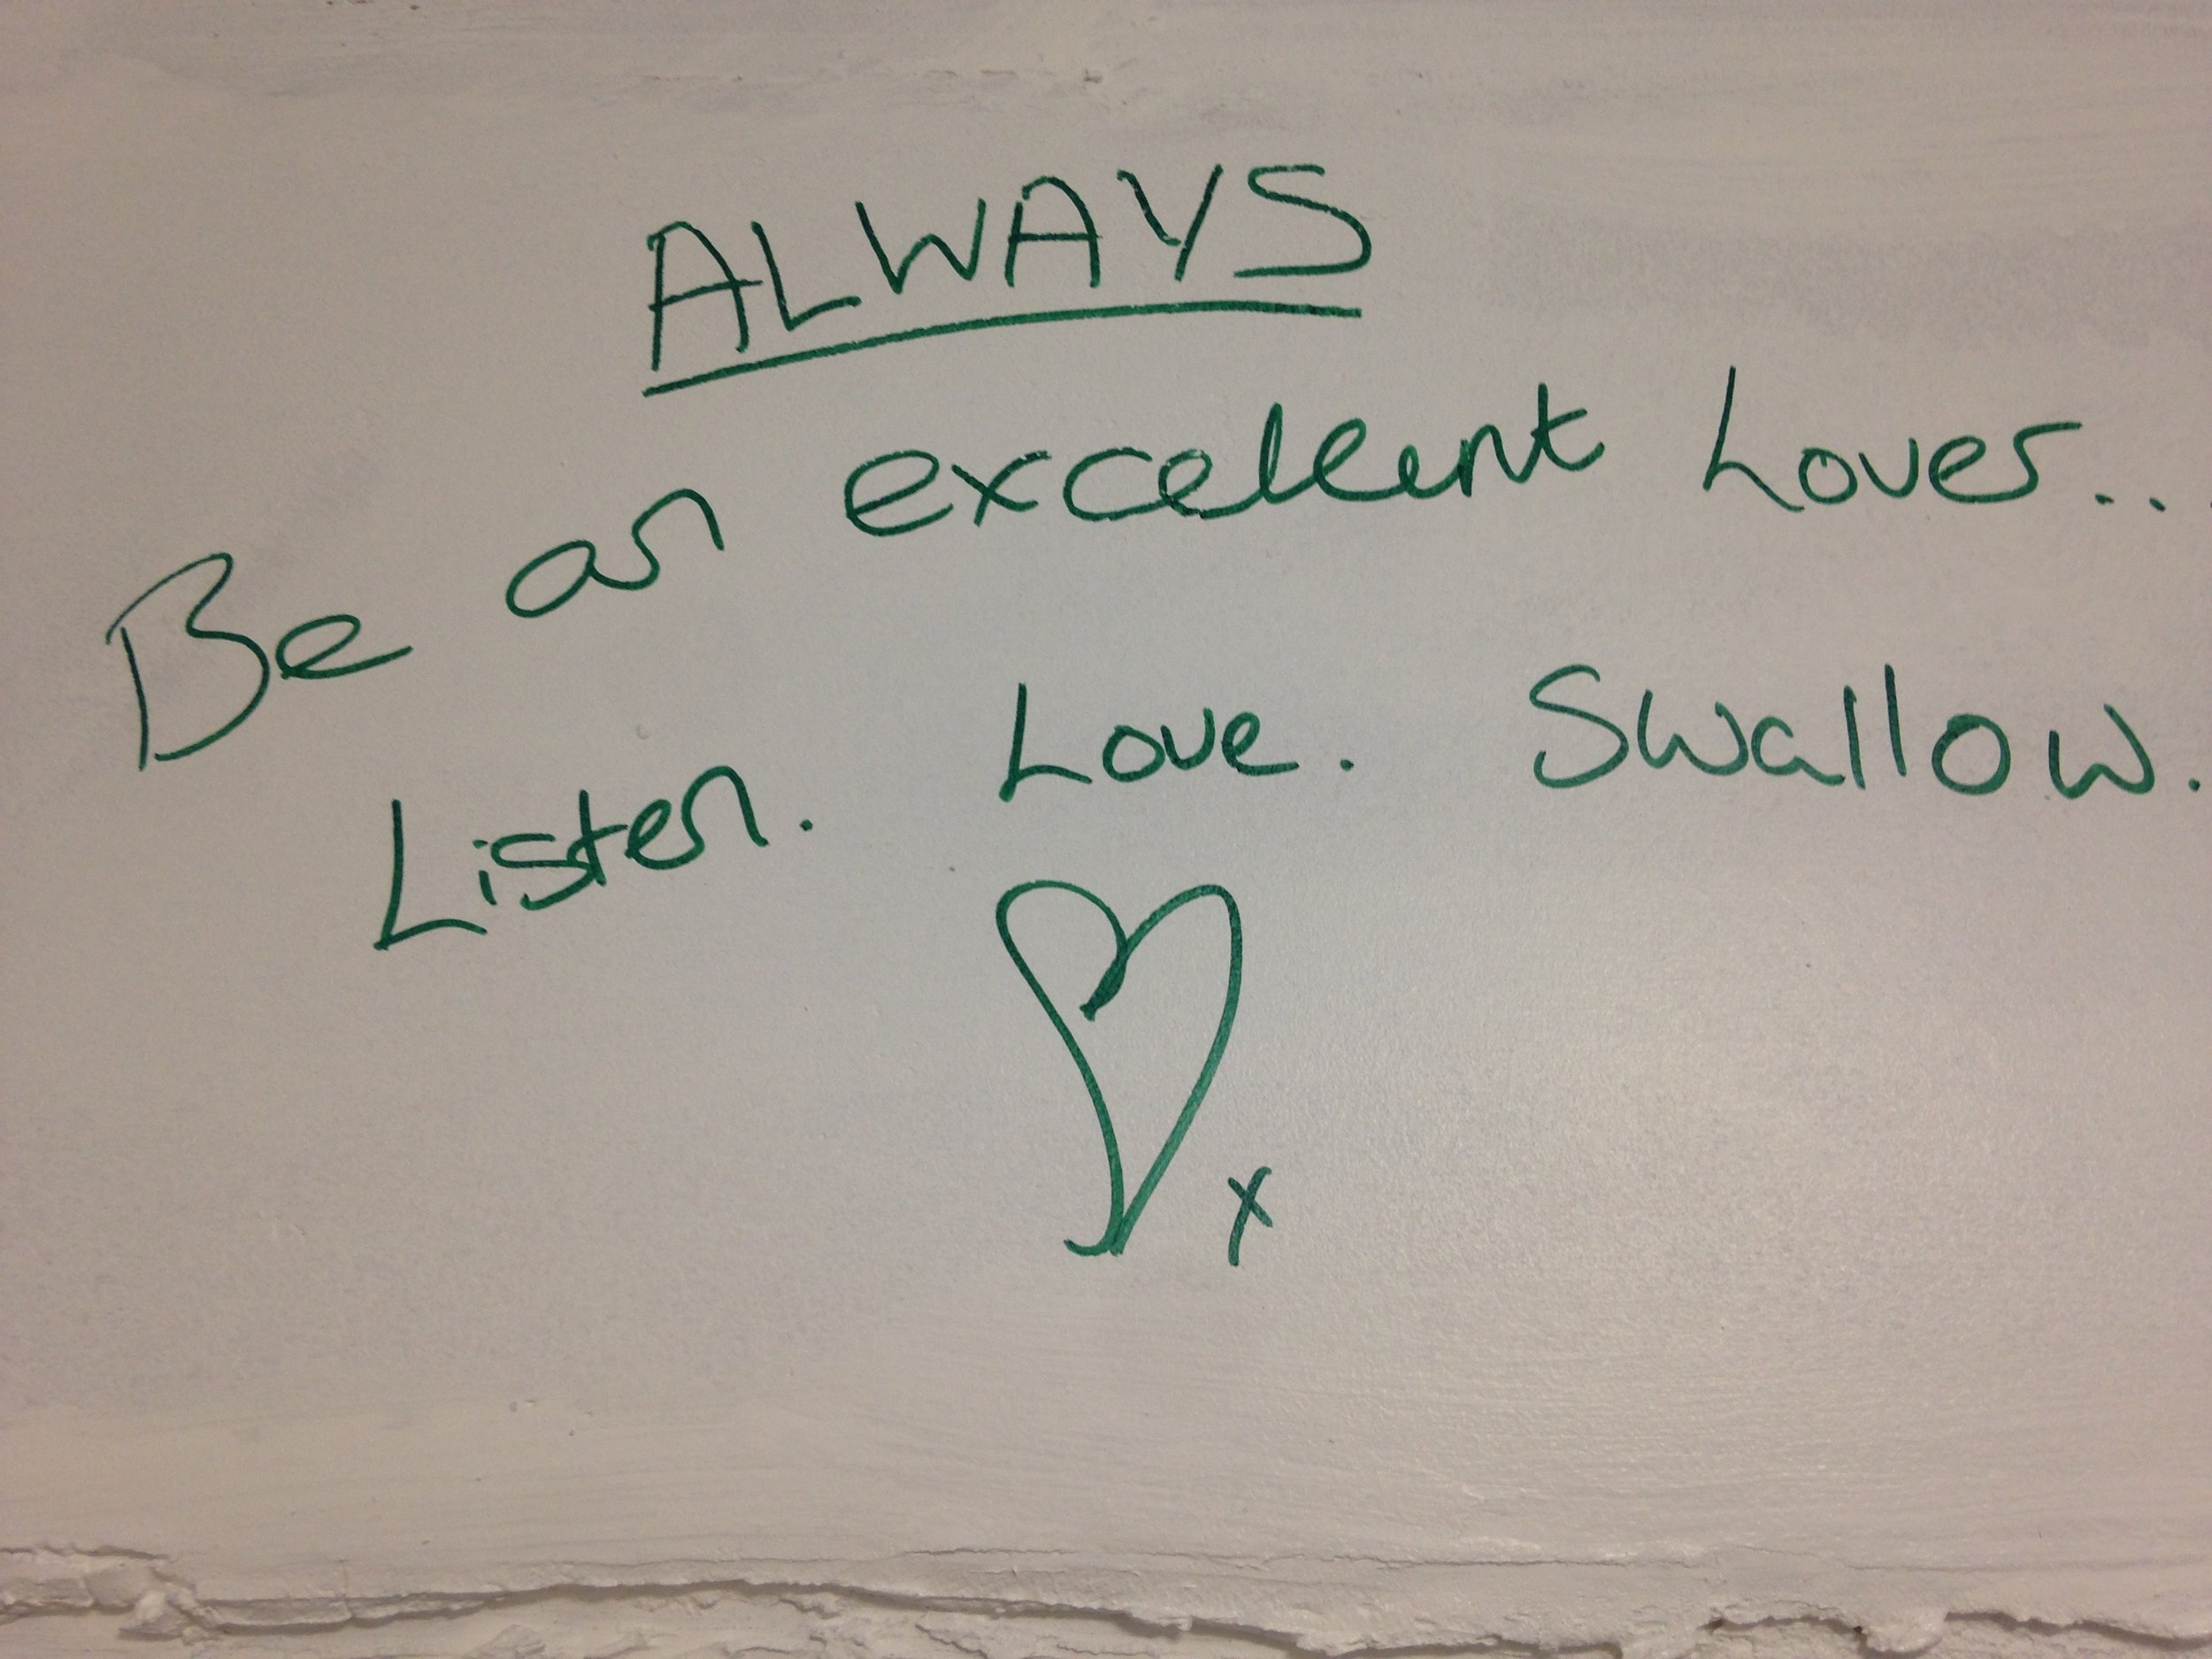 ALWAYS
Be an excellent Lover..
Listen. Love. Swallow.
x